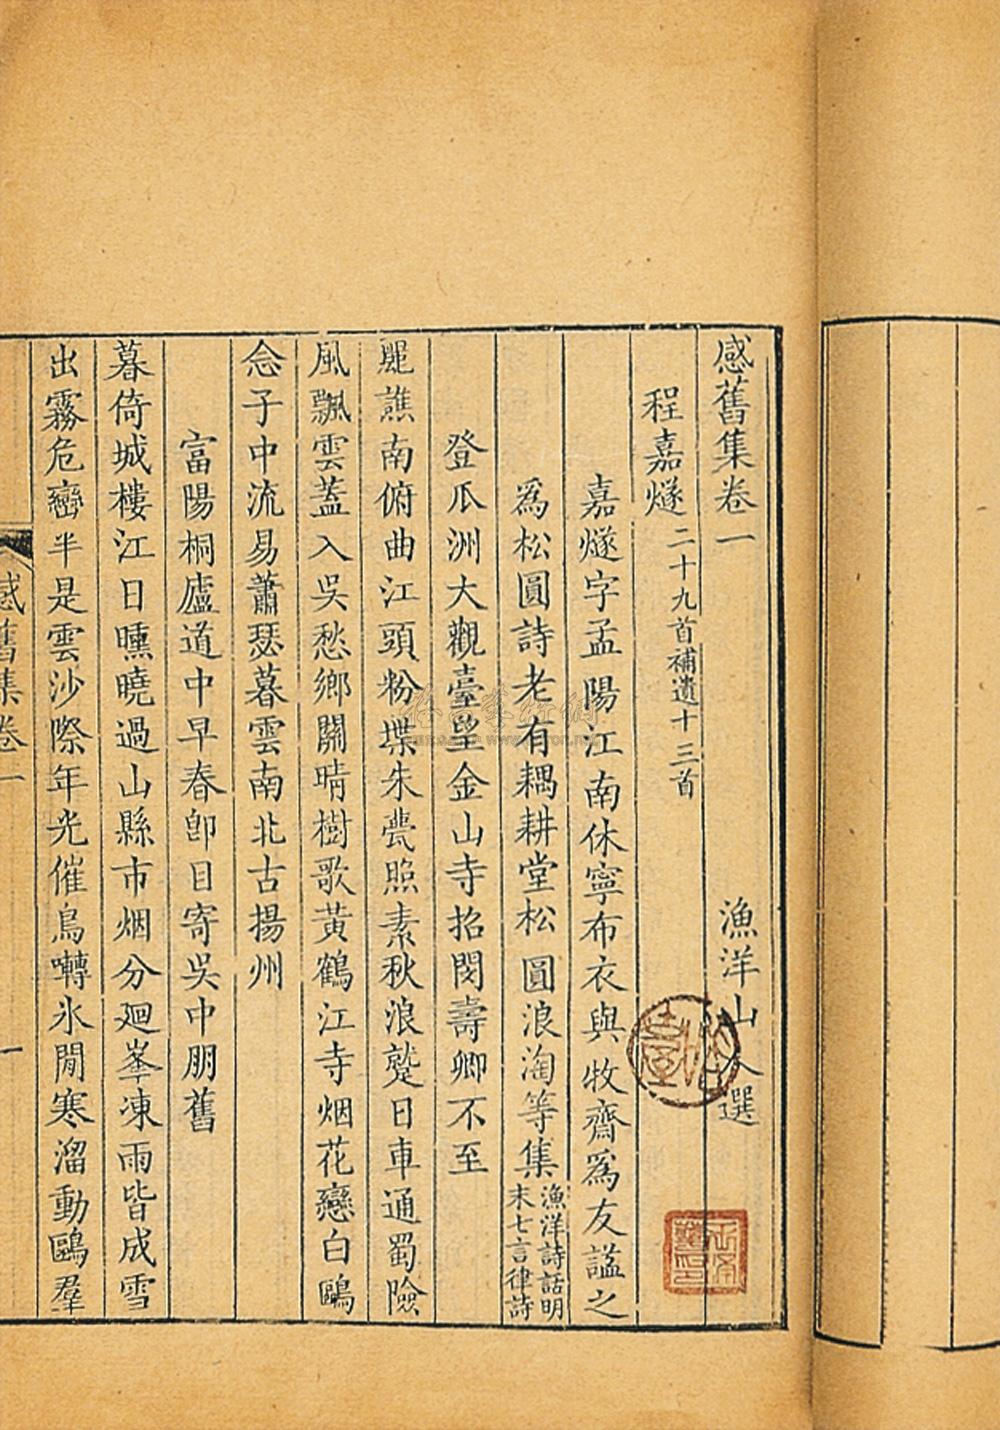 感舊集卷一
漁洋山人選
程嘉燧二十九首補遺十三首
嘉燧字孟陽江南休寧布衣與牧齋爲友謚之
爲松圓詩老有耦耕堂松圓浪淘等集漁洋詩話明
末七言律詩
登瓜洲大觀臺望金山寺招閔壽卿不至
麗譙南俯曲江頭粉堞朱甍照素秋浪蹙日車通蜀險
風飄雲蓋入吳愁鄉關晴樹歌黃鶴江寺烟花戀白鷗
念子中流易蕭瑟暮雲南北古揚州
富陽桐廬道中早春卽目寄吳中朋舊
暮倚城樓江日曛曉過山縣市烟分廻峯凍雨皆成雪
出霧危巒半是雲沙際年光催鳥囀氷閒寒溜動鷗羣
感舊集卷一
一